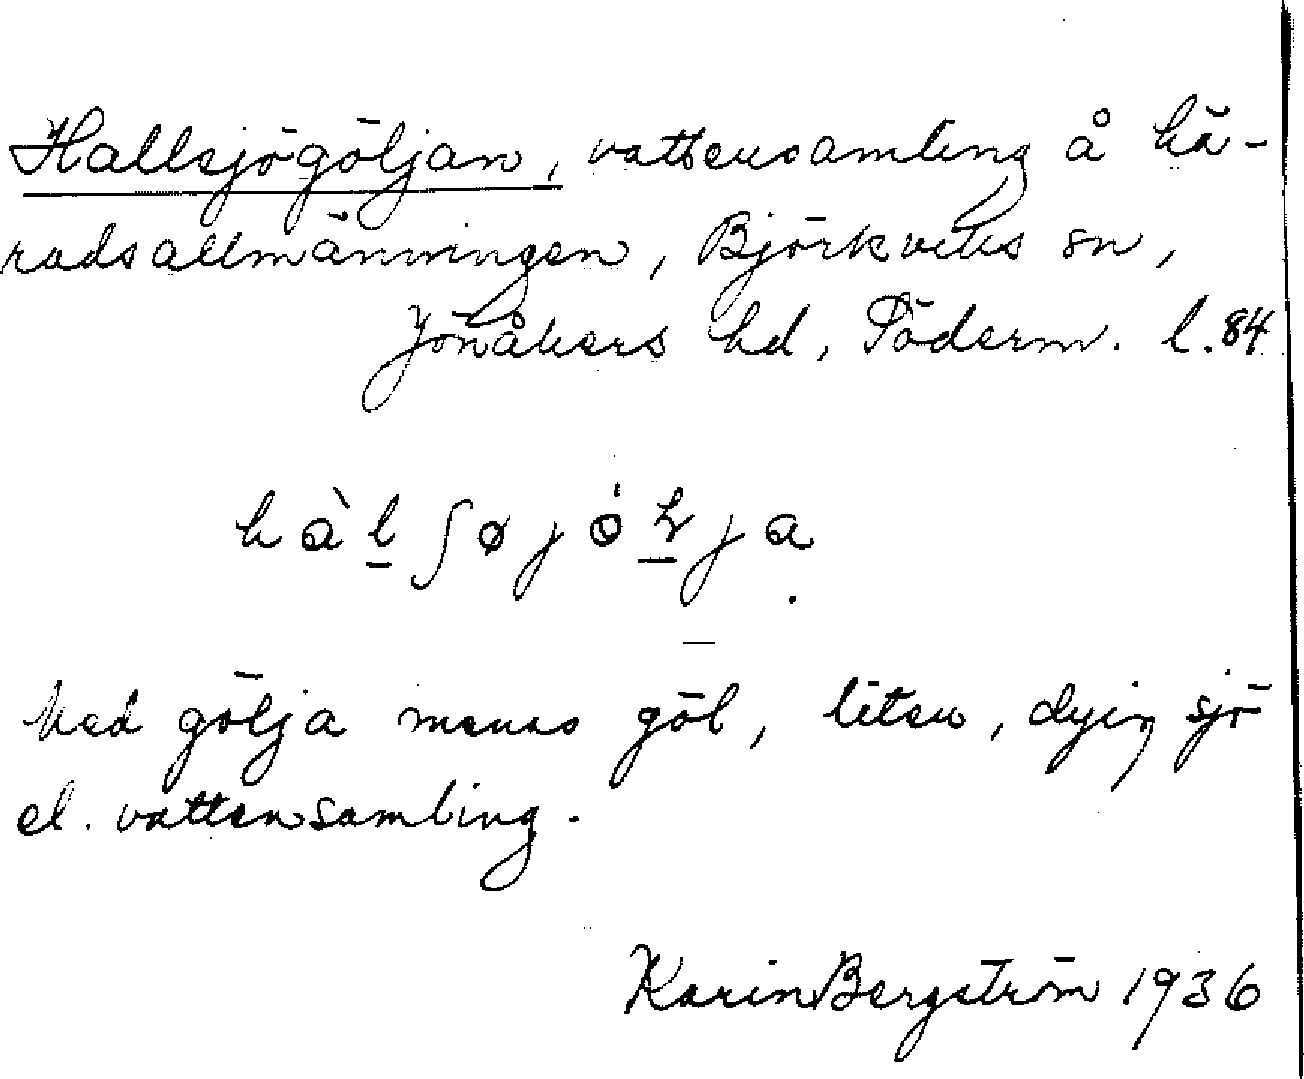 Hallsjögöljan, vattensamling å hä-
radsallmänningen, Björkviks sn,
Jönåkers hd, Söderm. l. 84
Med gölja menas göl, liten, dyig sjö
el. vattensamling.
Karin Bergström 1936